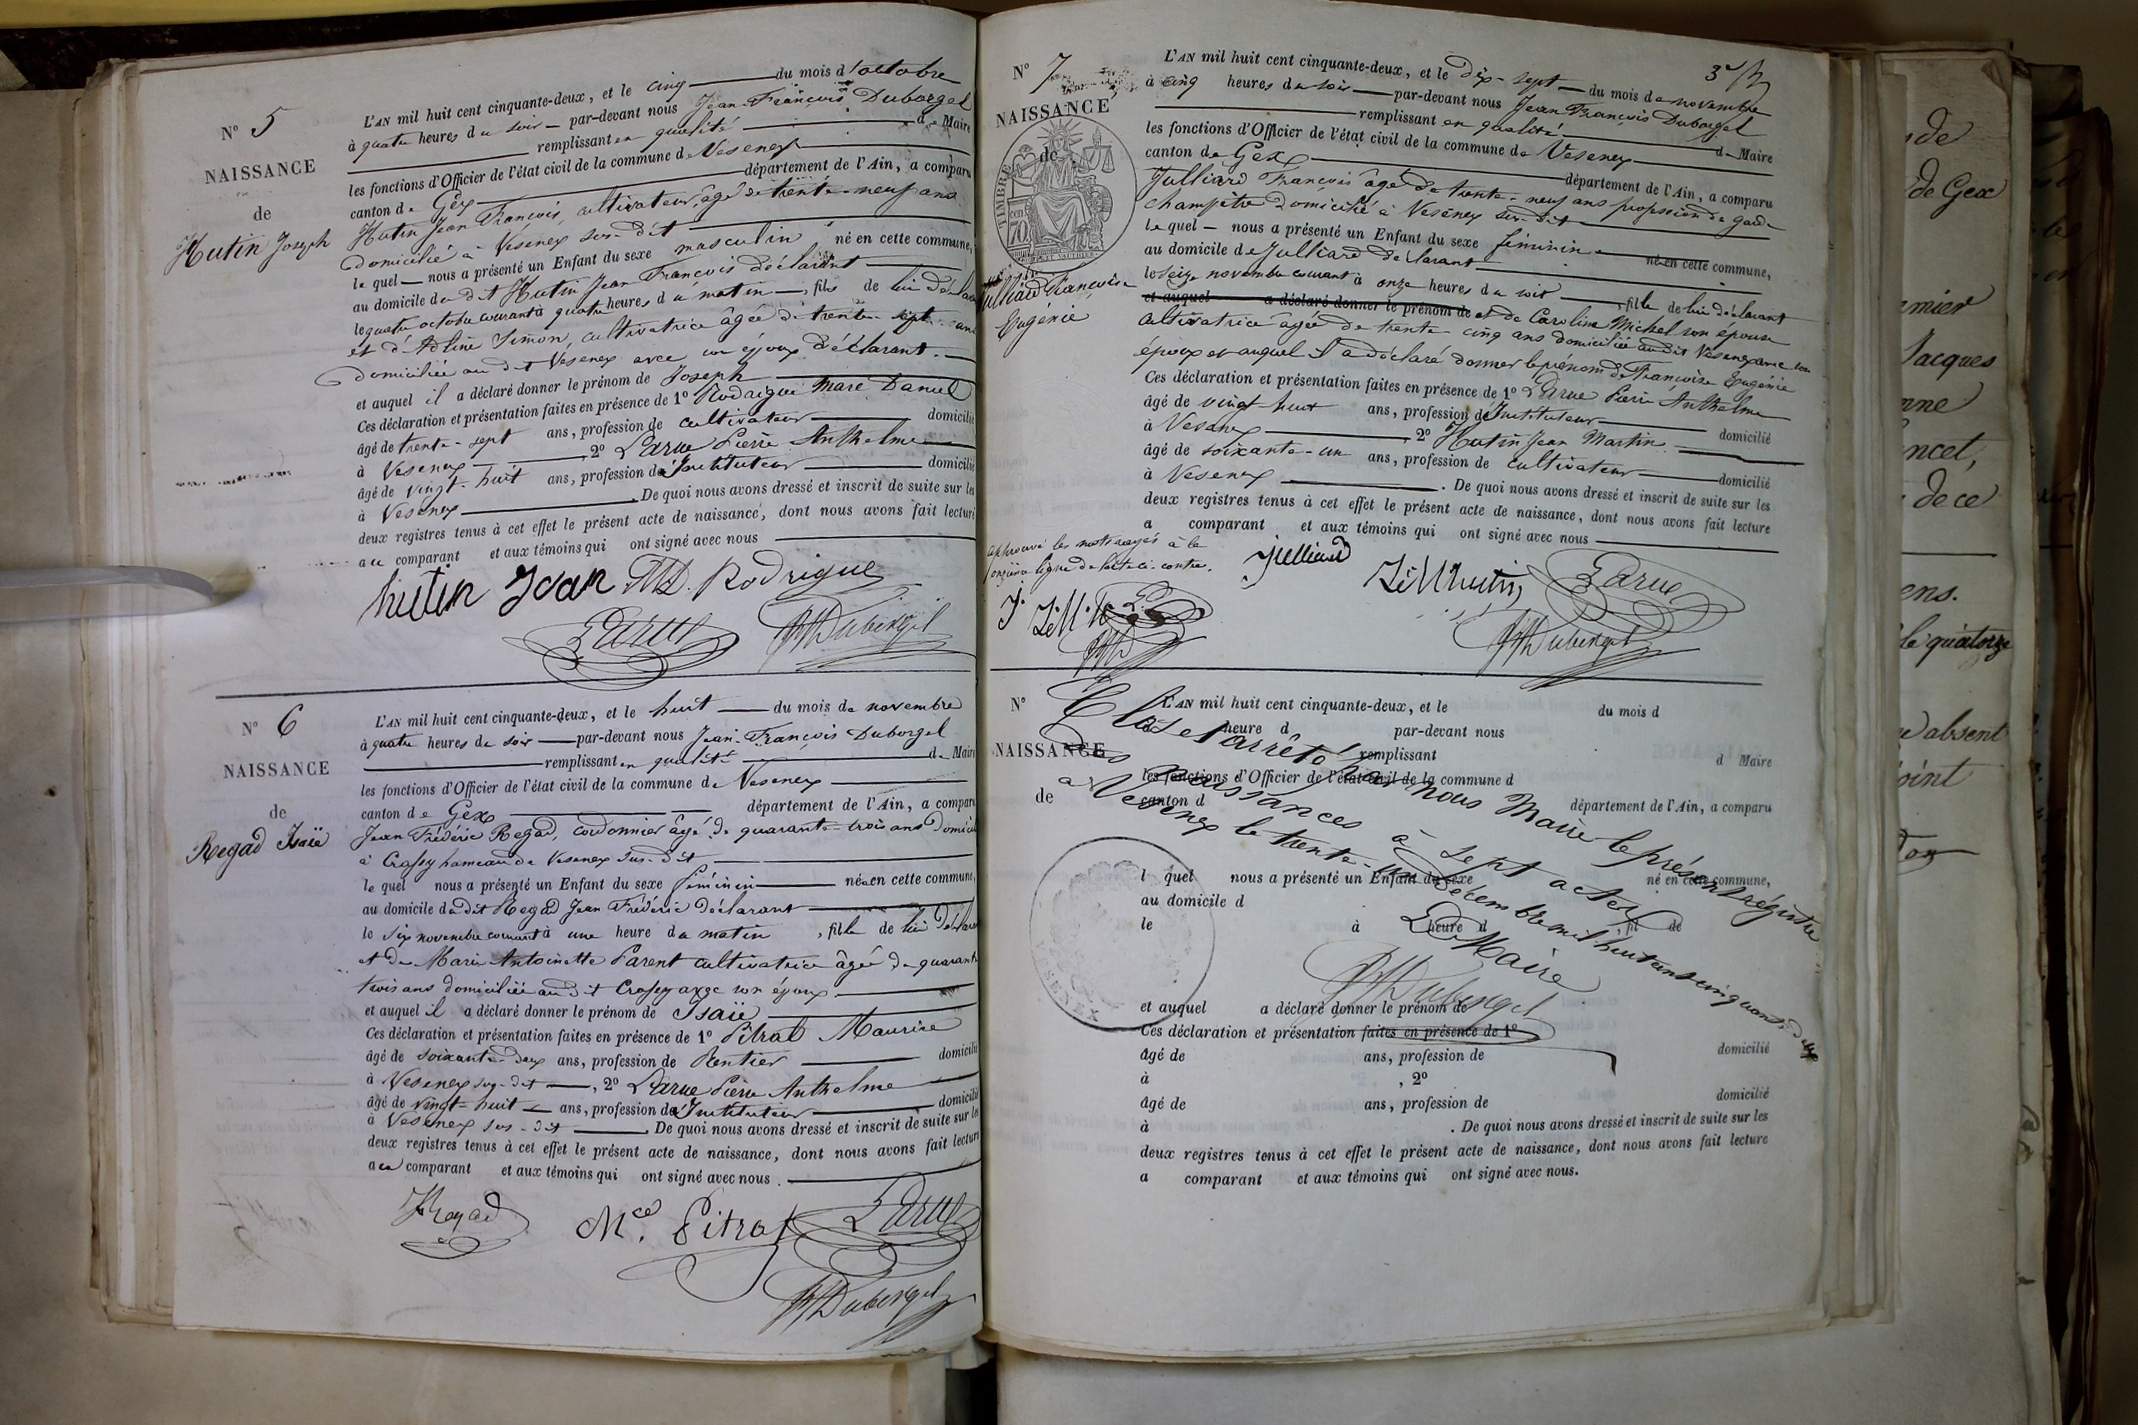 N° 5
NAISSANCE
de
Hutin Joseph
L'AN mil huit cent cinquante-deux, et le cinq du mois d'octobre
à quatre heures du soir par-devant nous Jean-François Duborgel
remplissant en qualité de Maire
les fonctions d'Officier de l'état civil de la commune de Vesenex
canton de Gex département de l'Ain, a comparu
Hutin Jean François, cultivateur, âgé de trente-neuf ans
domicilié à Vesenex sus-dit
lequel nous a présenté un Enfant du sexe masculin né en cette commune,
au domicile du dit Hutin Jean François déclarant
le quatre octobre courant à quatre heures du matin, fils de lui déclarant
et d'Adline Simon, cultivatrice âgée de trente-sept ans
domiciliée au dit Vesenex avec son époux déclarant.
et auquel il a déclaré donner le prénom de Joseph
Ces déclaration et présentation faites en présence de 1° Rodrigue Marc Daniel
âgé de trente-sept ans, profession de cultivateur domicilié
à Vesenex 2° Larue Pierre Anthelme
âgé de vingt-huit ans, profession d'Instituteur domicilié
à Vesenex. De quoi nous avons dressé et inscrit de suite sur les
deux registres tenus à cet effet le présent acte de naissance, dont nous avons fait lecture
au comparant et aux témoins qui ont signé avec nous
hutin Jean MD. Rodrigue
Larue JF Duborgel
N° 6
NAISSANCE
de
Regad Isaïe
L'AN mil huit cent cinquante-deux, et le huit du mois de novembre
à quatre heures du soir par-devant nous Jean-François Duborgel
remplissant en qualité de Maire
les fonctions d'Officier de l'état civil de la commune de Vesenex
canton de Gex département de l'Ain, a comparu
Jean Frédéric Regad, cordonnier âgé de quarante-trois ans domicilié
à Crassy hameau de Vesenex sus-dit
lequel nous a présenté un Enfant du sexe féminin née en cette commune,
au domicile du dit Regad Jean Frédéric déclarant
le six novembre courant à une heure du matin, fille de lui déclarant
et de Marie Antoinette Parent cultivatrice âgée de quarante
trois ans domiciliée au dit Crassy avec son époux
et auquel il a déclaré donner le prénom de Isaïe
Ces déclaration et présentation faites en présence de 1° Pitrat Maurice
âgé de soixante-deux ans, profession de Rentier domicilié
à Vesenex sus-dit, 2° Larue Pierre Anthelme
âgé de vingt-huit ans, profession d'Instituteur domicilié
à Vesenex sus-dit. De quoi nous avons dressé et inscrit de suite sur les
deux registres tenus à cet effet le présent acte de naissance, dont nous avons fait lecture
au comparant et aux témoins qui ont signé avec nous.
Regad Mce. Pitrat Larue
JF Duborgel
N° 7
NAISSANCE
de
TIMBRE
70
Julliard Françoise
Eugénie
L'AN mil huit cent cinquante-deux, et le dix-sept du mois de novembre
à cinq heures du soir par-devant nous Jean François Duborgel
remplissant en qualité de Maire
les fonctions d'Officier de l'état civil de la commune de Vesenex
canton de Gex département de l'Ain, a comparu
Julliard François âgé de trente-neuf ans profession de garde
champêtre domicilié à Vesenex sus-dit
lequel nous a présenté un Enfant du sexe féminin née en cette commune,
au domicile de Julliard déclarant
le seize novembre courant à onze heures du soir, fille de lui déclarant
et auquel a déclaré donner le prénom de et de Caroline Michel son épouse
cultivatrice âgée de trente-cinq ans domiciliée au dit Vesenex avec son
époux et auquel il a déclaré donner le prénom de Françoise Eugénie
Ces déclaration et présentation faites en présence de 1° Larue Pierre Anthelme
âgé de vingt-huit ans, profession d'Instituteur domicilié
à Vesenex 2° Hutin Jean Martin
âgé de soixante-un ans, profession de cultivateur domicilié
à Vesenex. De quoi nous avons dressé et inscrit de suite sur les
deux registres tenus à cet effet le présent acte de naissance, dont nous avons fait lecture
a comparant et aux témoins qui ont signé avec nous
approuvé les mots rayés à la
onzième ligne de l'acte ci-contre.
Julliard Larue
JF Duborgel
N°
NAISSANCE
de
L'AN mil huit cent cinquante-deux, et le du mois d
à heure d par-devant nous
remplissant d Maire
les fonctions d'Officier de l'état civil de la commune d
canton d département de l'Ain, a comparu
l quel nous a présenté un Enfant du sexe né en cette commune,
au domicile d
le à heure d fil de
et auquel a déclaré donner le prénom de
Ces déclaration et présentation faites en présence de 1°
âgé de ans, profession de domicilié
à , 2°
âgé de ans, profession de domicilié
à . De quoi nous avons dressé et inscrit de suite sur les
deux registres tenus à cet effet le présent acte de naissance, dont nous avons fait lecture
a comparant et aux témoins qui ont signé avec nous.
Clos et arrêté par nous Maire le présent régistre
des naissances à sept actes
a Vesenex le trente-un décembre mil huit cent cinquante deux
Le Maire
JF Duborgel
de Gex
Jacques
de ce
ens.
le quatorze
absent